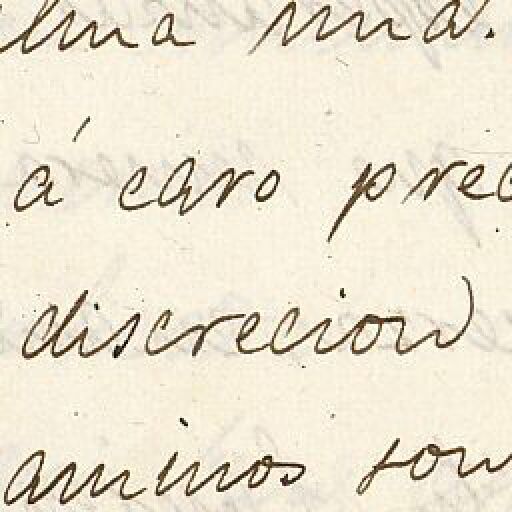 alma mia.
á caro prec
discrecion
aminos son